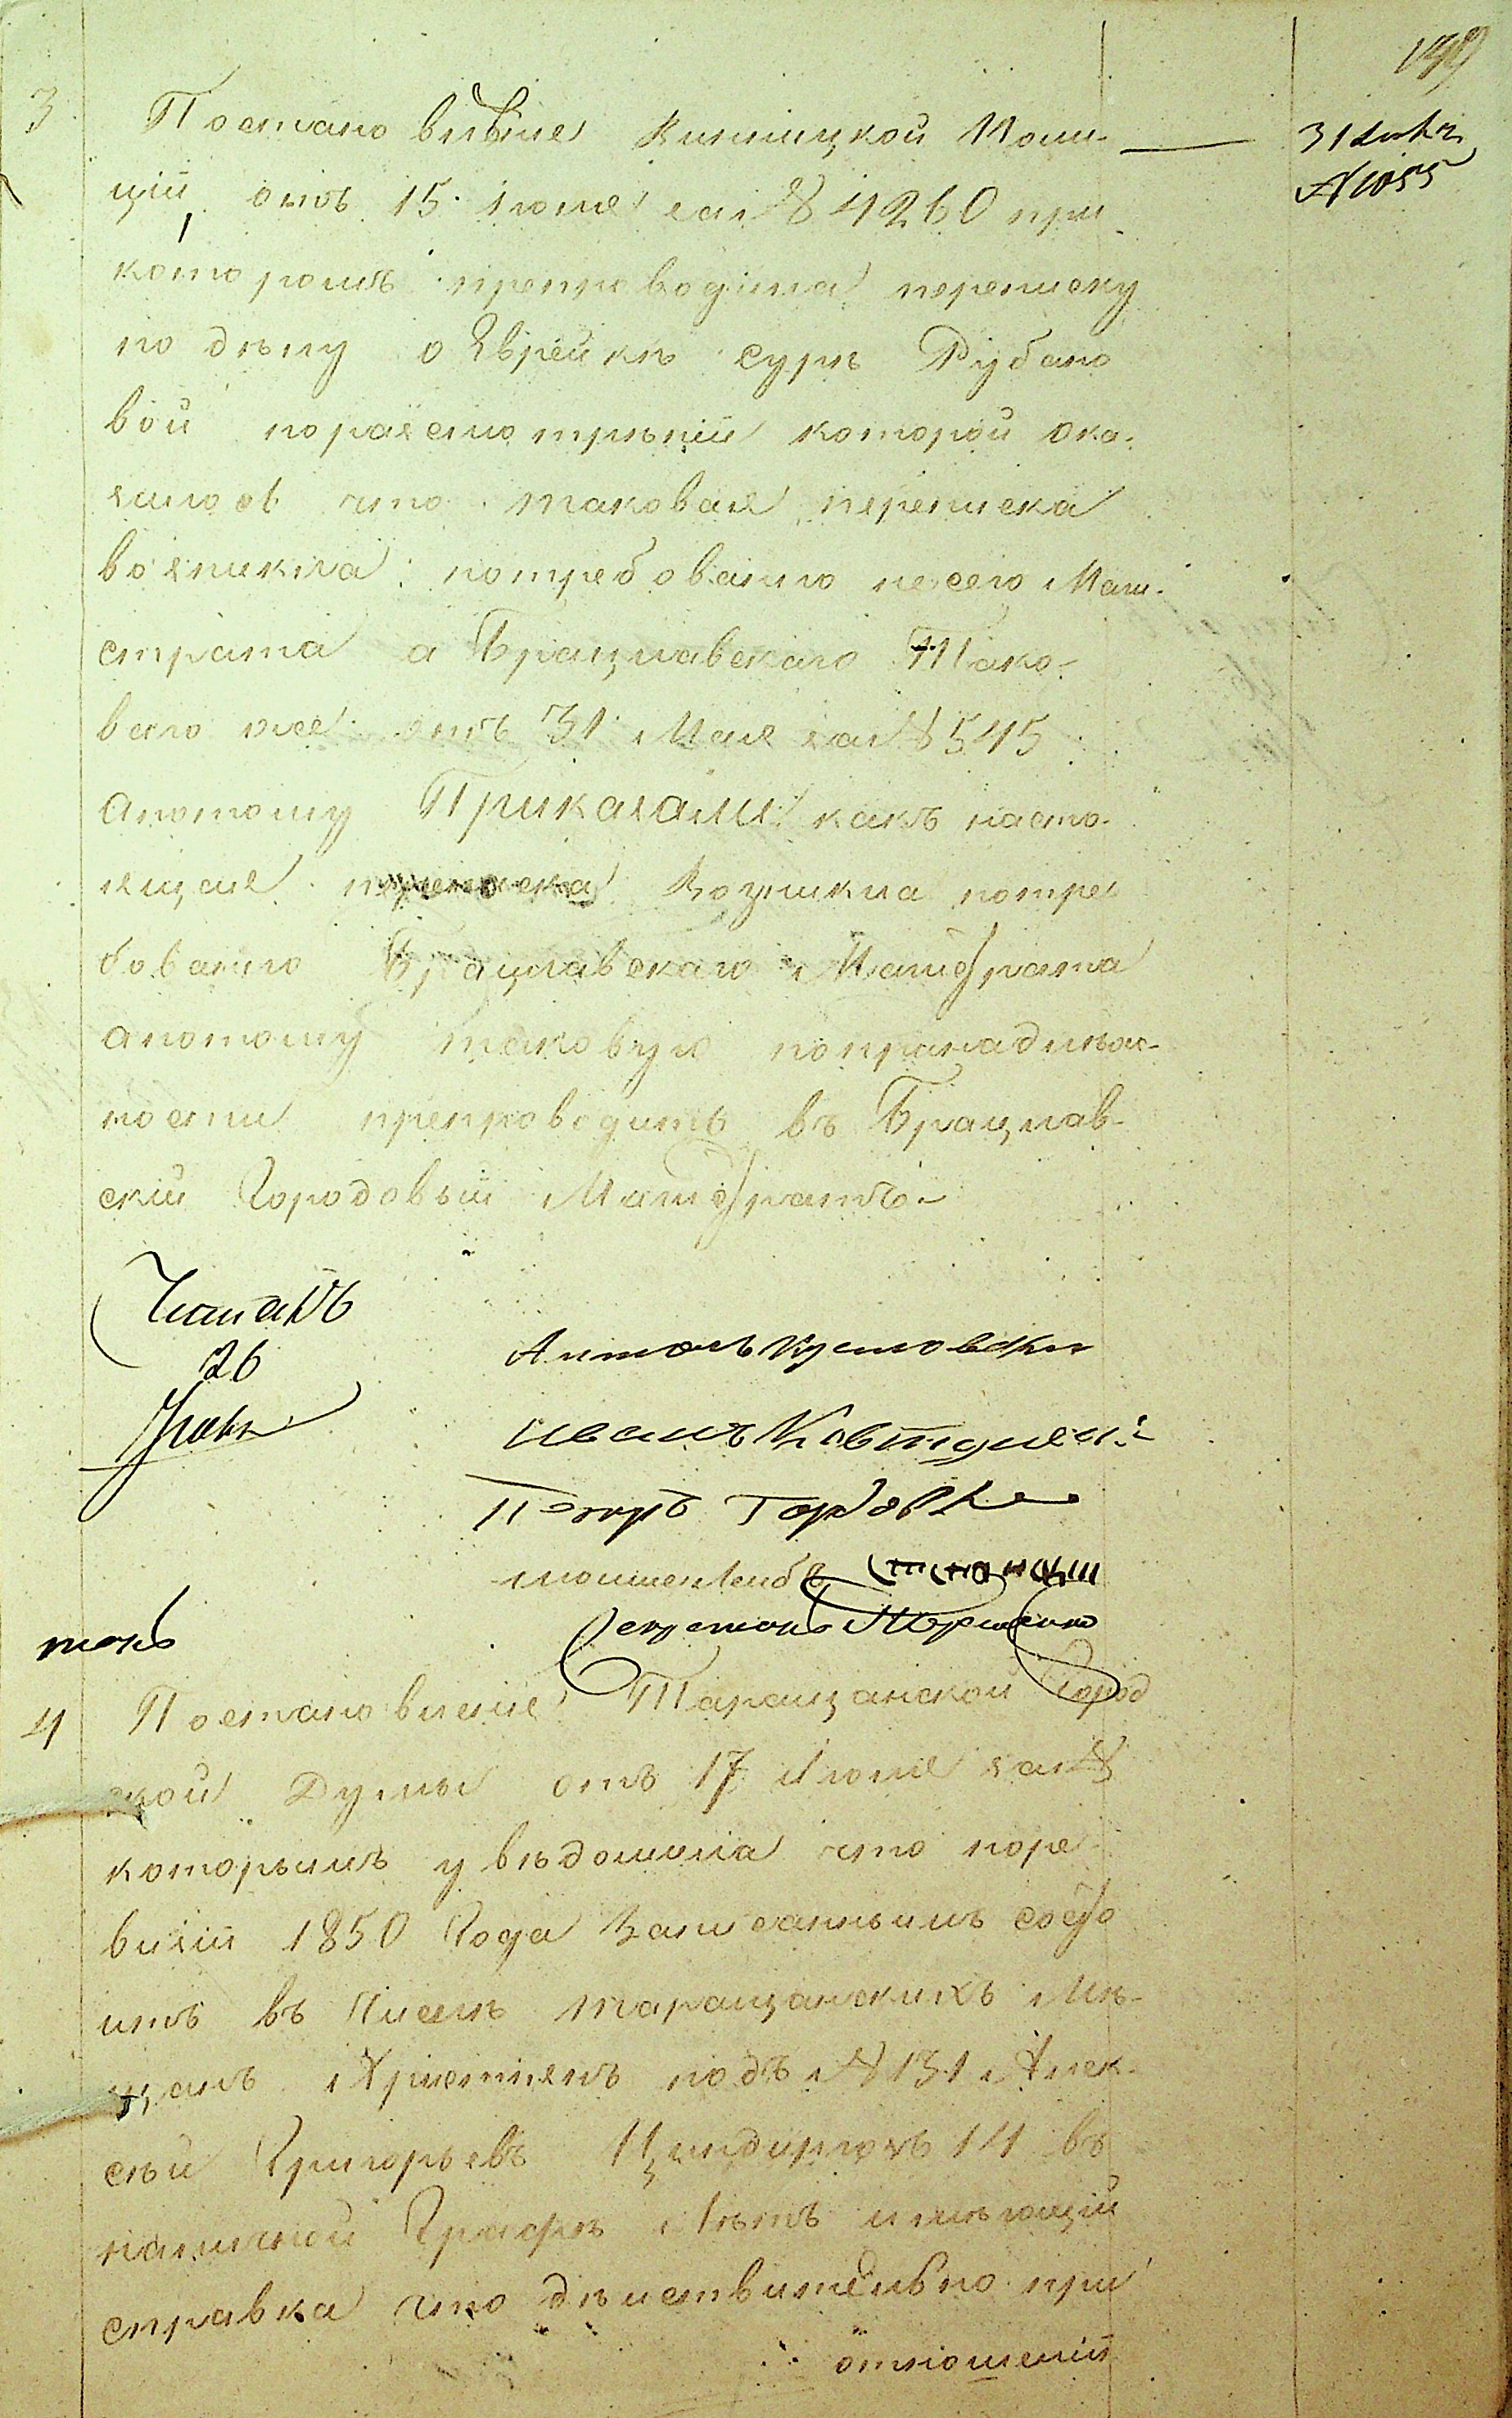 199
3 Постановленіе Винницкой Поли-
31 Июля
№ 1055
ціи отъ 15 Іюля за № 4260 при
которомъ препроводила переписку
по дѣлу о Еврейкѣ Сурѣ Рубано
вой поразсмотрѣніи которой ока-
залось что таковая переписка
возникла потребованію не сего Маги-
страта а Брацлавскаго Тако-
ваго же отъ 31 Мая за № 545
апотому Приказали: какъ насто-
ящая переписка возникла потре
бованію Брацлавскаго Магистрата
апотому таковую попринадлеж-
ности препроводить въ Брацлав-
скій Городовый Магистратъ
Читалъ
26
Іюля
Антонъ
Иванъ
Петръ
Секретарь
4 Постановленіе Таращанской Город
ской Думы отъ 17 Іюля за №
которымъ увѣдомила что поре
визіи 1850 Года Записаннымъ состо
итъ въ Числѣ таращанскихъ Мѣ-
щанъ Христіянъ подъ № 131 Алек-
сѣй Григорьевъ 14 въ
наличной Графѣ Лѣтъ имѣющій
справка что дѣйствительно при
отношеніи